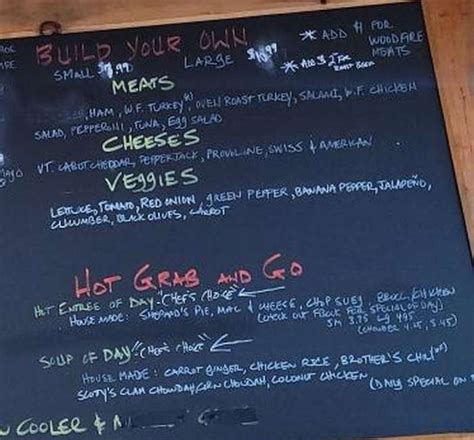 BUILD YOUR OWN
* ADD $1 FOR WOODFIRE MEATS
SMALL $ .99 LARGE
* ADD $2 FOR ROAST BEEF
MEATS
HAM, W.F. TURKEY(*), OVEN ROAST TURKEY, SALAMI, W.F. CHICKEN
SALAD, PEPPERONI, TUNA, EGG SALAD
CHEESES
VT. CABOT CHEDDAR, PEPPERJACK, PROVOLONE, SWISS & AMERICAN
MAYO
VEGGIES
LETTUCE, TOMATO, RED ONION, GREEN PEPPER, BANANA PEPPER, JALAPEÑO,
CUCUMBER, BLACK OLIVES, CARROT
HOT GRAB AND GO
HOT ENTREE OF DAY - CHEF'S CHOICE
HOUSE MADE: SHEPARD'S PIE, MAC & CHEESE, CHOP SUEY, BROC/CHICKEN
(CHECK OUT FOR SPECIAL OF DAY)
SM 3.95 LG 4.95
(CHOWDER 4.25, 5.45)
SOUP OF DAY - CHEF'S CHOICE
HOUSE MADE: CARROT GINGER, CHICKEN RICE, BROTHER'S CHILI
SCOTY'S CLAM CHOWDAH, CORN CHOWDAH, COCONUT CHICKEN (DAILY SPECIAL ON
COOLER &